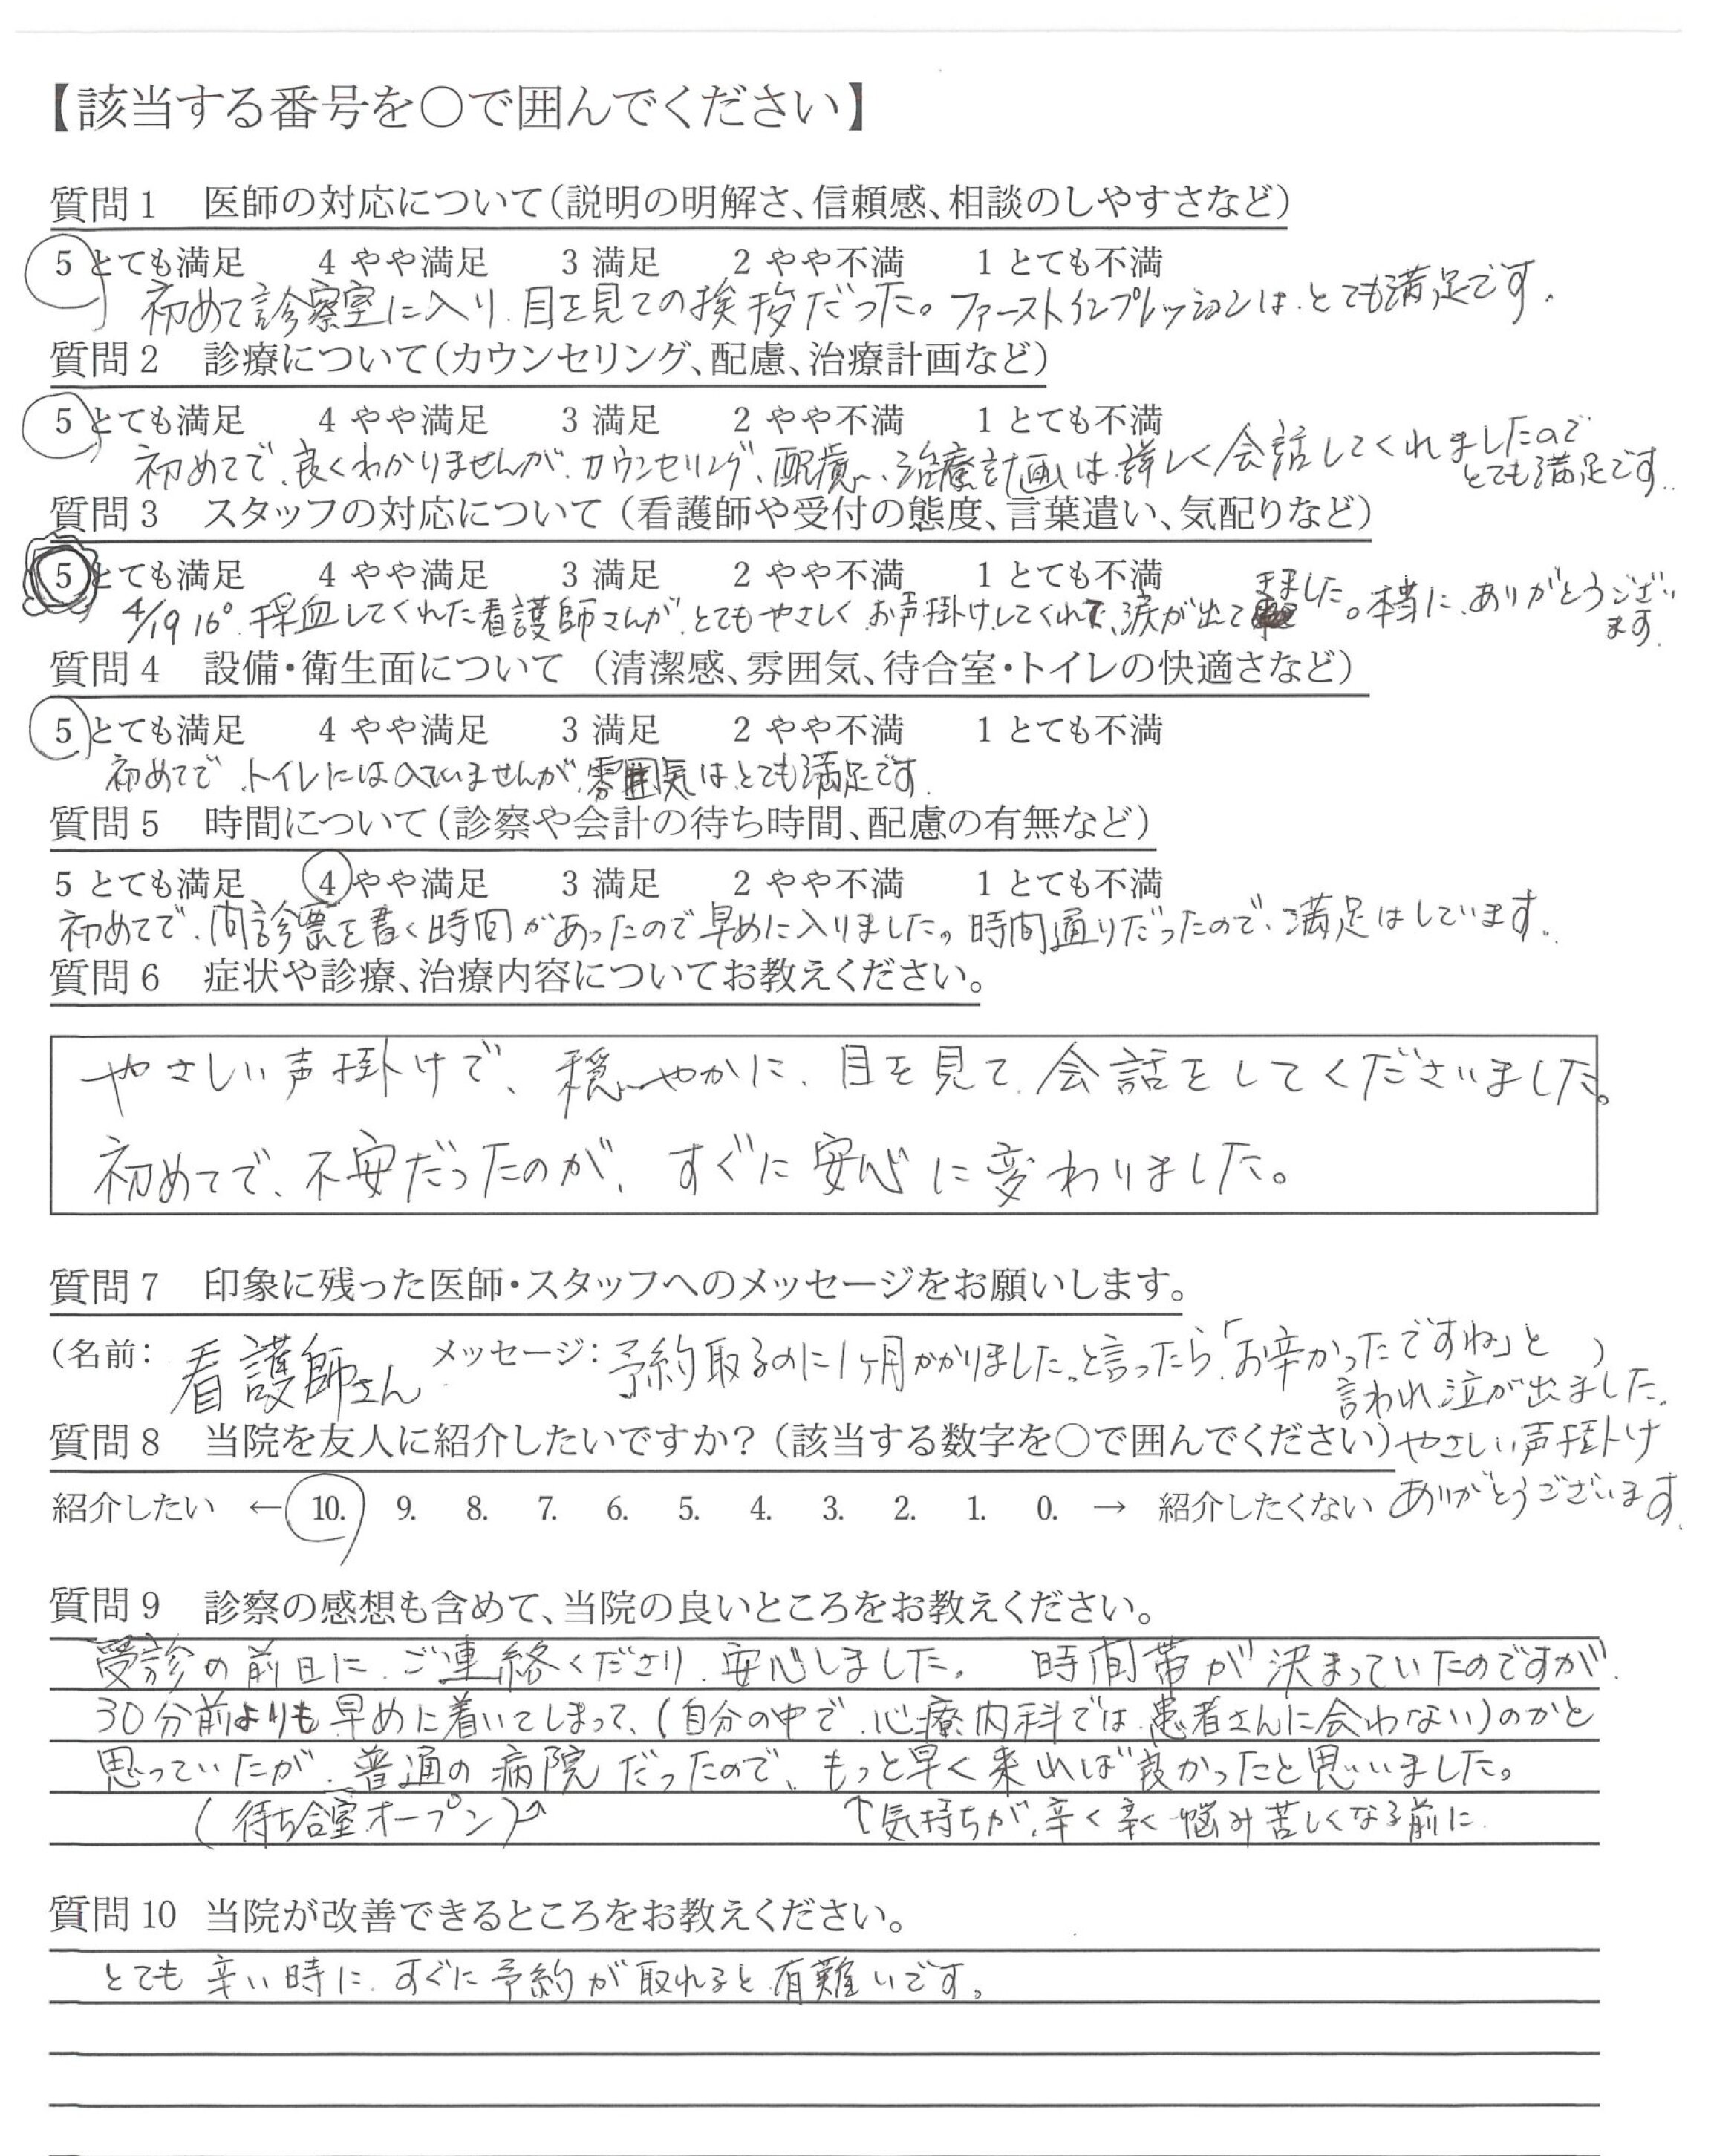 【該当する番号を○で囲んでください】
質問1 医師の対応について(説明の明解さ、信頼感、相談のしやすさなど)
5 とても満足 4 やや満足 3 満足 2 やや不満 1 とても不満
初めて診察室に入り、目を見ての挨拶だった。ファーストインプレッションは、とても満足です。
質問2 診療について(カウンセリング、配慮、治療計画など)
5 とても満足 4 やや満足 3 満足 2 やや不満 1 とても不満
初めてで、良くわかりませんが、カウンセリング、配慮、治療計画は、詳しく会話してくれましたので
とても満足です。
質問3 スタッフの対応について (看護師や受付の態度、言葉遣い、気配りなど)
5 とても満足 4 やや満足 3 満足 2 やや不満 1 とても不満
4/19 16° 採血してくれた看護師さんが、とてもやさしく、お声掛けしてくれて、涙が出てきました。本当に、ありがとうござい
ます。
質問4 設備・衛生面について (清潔感、雰囲気、待合室・トイレの快適さなど)
5 とても満足 4 やや満足 3 満足 2 やや不満 1 とても不満
初めてで、トイレには入ていませんが、雰囲気は、とても満足です。
質問5 時間について(診察や会計の待ち時間、配慮の有無など)
5 とても満足 4 やや満足 3 満足 2 やや不満 1 とても不満
初めてで、問診票を書く時間があったので早めに入りました。時間通りだったので、満足はしています。
質問6 症状や診療、治療内容についてお教えください。
やさしい声掛けで、穏やかに、目を見て、会話をしてくださいました。
初めてで、不安だったのが、すぐに安心に変わりました。
質問7 印象に残った医師・スタッフへのメッセージをお願いします。
(名前: 看護師さん メッセージ: 予約取るのに1ヶ月かかりました。と言ったら、「お辛かったですね」と )
言われ、泣が出ました。
質問8 当院を友人に紹介したいですか? (該当する数字を○で囲んでください) やさしい声掛け
紹介したい ← 10. 9. 8. 7. 6. 5. 4. 3. 2. 1. 0. → 紹介したくない ありがとうございます。
質問9 診察の感想も含めて、当院の良いところをお教えください。
受診の前日に、ご連絡くださり、安心しました。 時間帯が決まっていたのですが、
30分前よりも早めに着いてしまって、(自分の中で、心療内科では、患者さんに会わない)のかと
思っていたが、普通の病院だったので、もっと早く来れば良かったと思いました。
(待ち合室オープン)↗ ↑気持ちが、辛く辛く悩み苦しくなる前に、
質問10 当院が改善できるところをお教えください。
とても辛い時に、すぐに予約が取れると、有難いです。